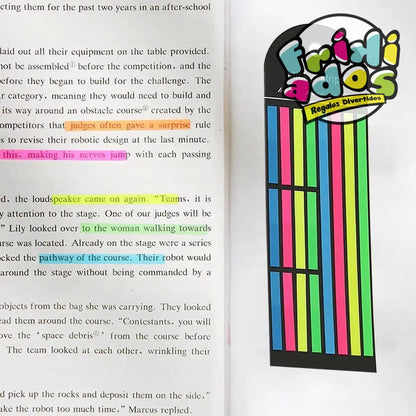 cting them for the past two years in an after-school
laid out all their equipment on the table provided.
not be assembled① before the competition, and the
before they began to build for the challenge. The
ar category, meaning they would need to build and
its way around an obstacle course④ created by the
competitors that judges often gave a surprise rule
s to revise their robotic design at the last minute.
this, making his nerves jump with each passing
ed, the loudspeaker came on again. “Teams, it is
y attention to the stage. One of our judges will be
” Lily looked over to the woman walking towards
urse was located. Already on the stage were a series
ocked the pathway of the course. Their robot would
around the stage without being commanded by a
objects from the bag she was carrying. They looked
ead them around the course. “Contestants, you will
ove the ‘space debris⑥’ from the course before
The team looked at each other, wrinkling their
d pick up the rocks and deposit them on the side,”
ake the robot too much time,” Marcus replied.
frikiados
Regalos Divertidos